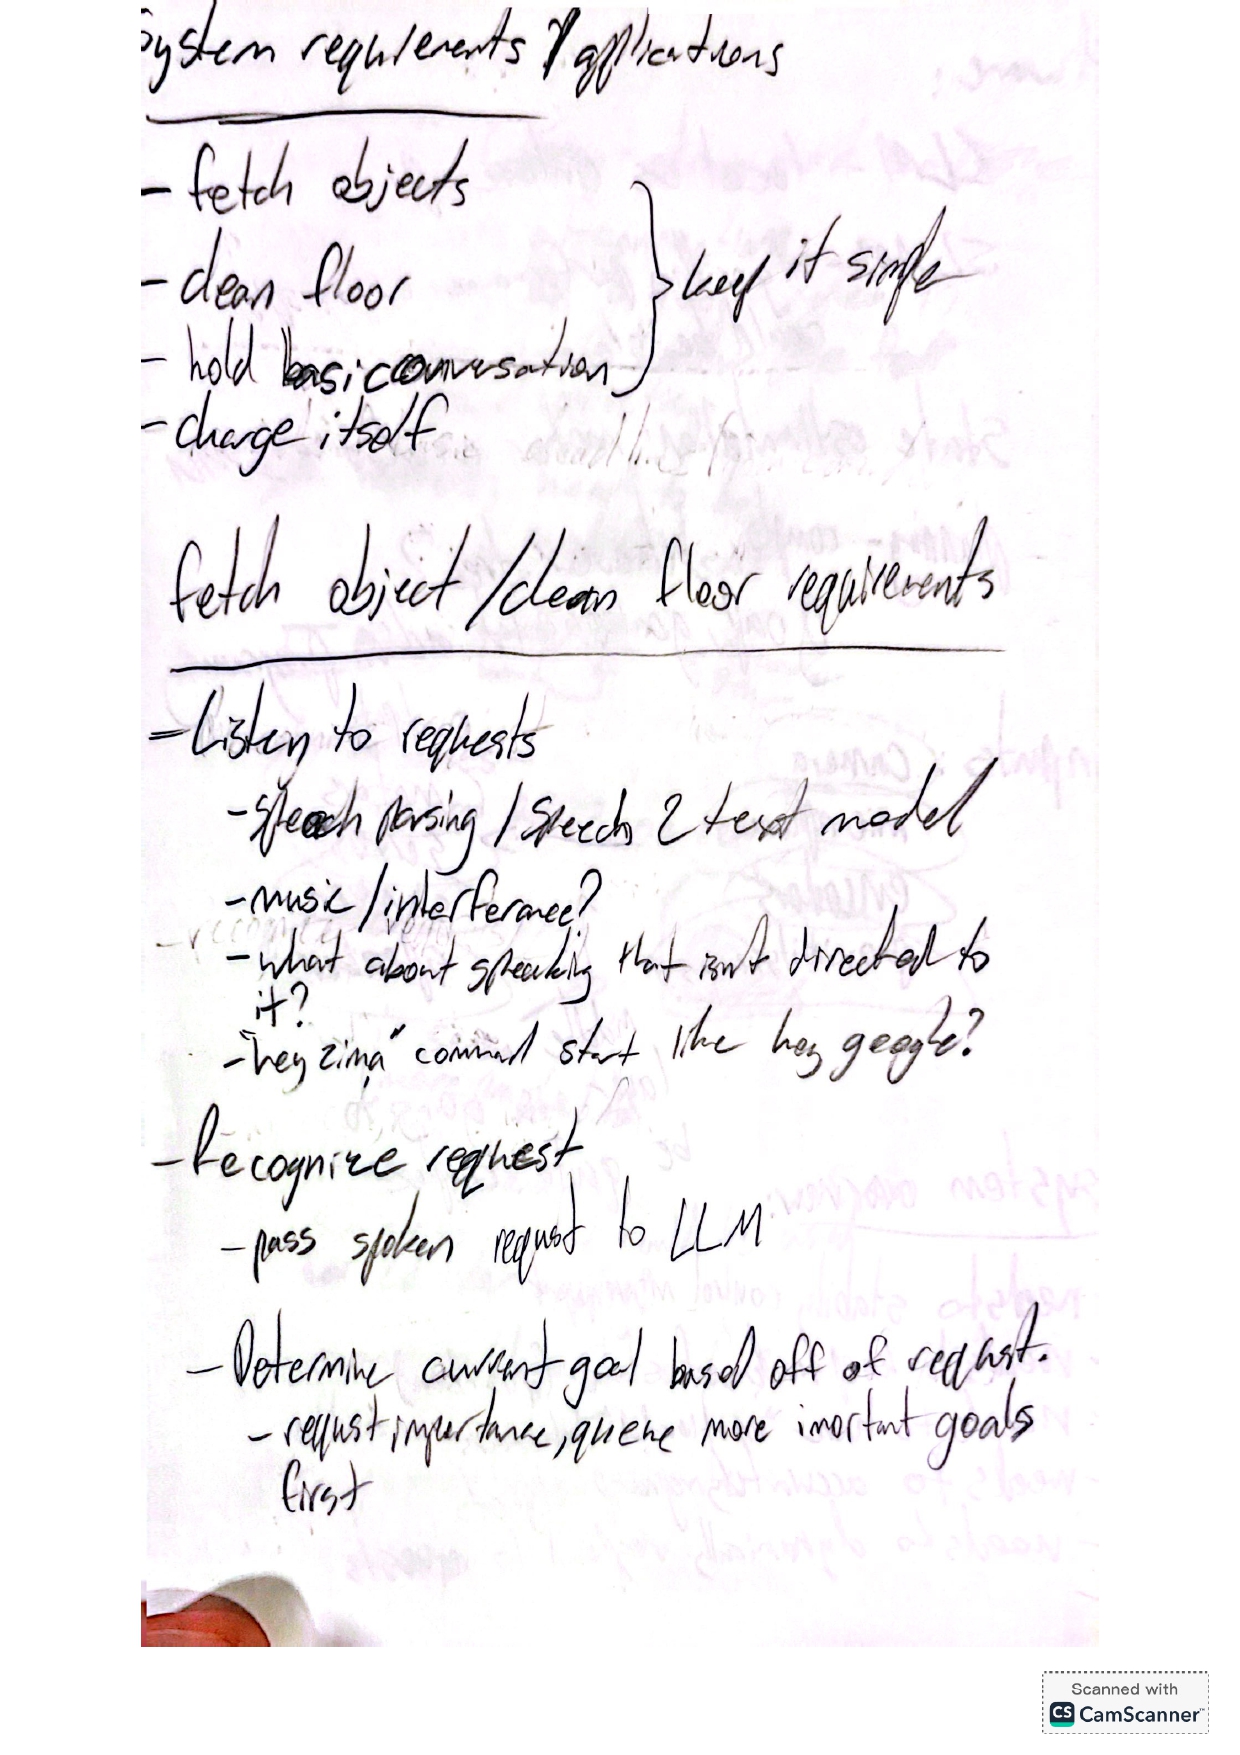 System requirements / applications
- fetch objects
- clean floor
- hold basic conversation
- charge itself
keep it simple
fetch object / clean floor requirements
- Listen to requests
- speech parsing / speech 2 text model
- music / interference?
- what about speaking that isn't directed to
it?
- "hey zima" command start like hey google?
- Recognize request
- pass spoken request to LLM
- Determine current goal based off of request.
- request importance, queue more imortant goals
first
Scanned with
CS CamScanner